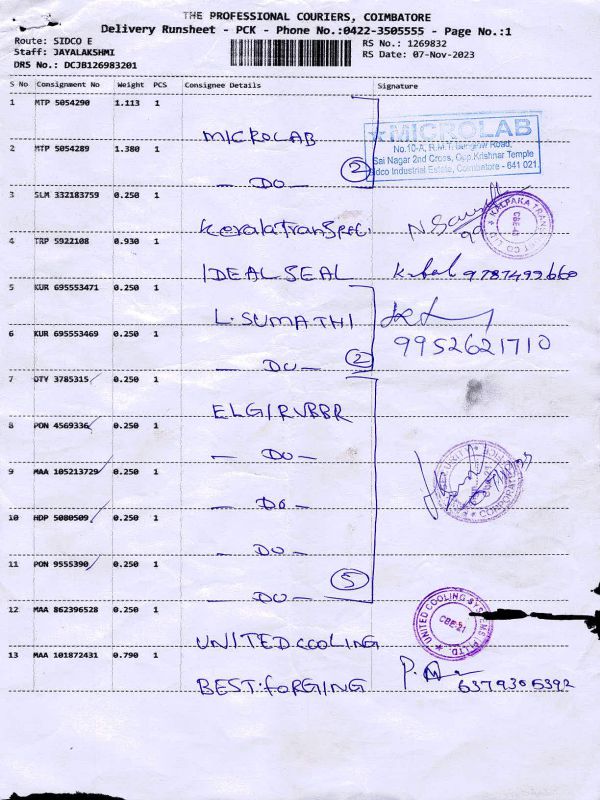 THE PROFESSIONAL COURIERS, COIMBATORE
Delivery Runsheet - PCK - Phone No.:0422-3505555 - Page No.:1
Route: SIDCO E
Staff: JAYALAKSHMI
DRS No.: DCJB126983201
RS No.: 1269832
RS Date: 07-Nov-2023
S No Consignment No Weight PCS Consignee Details Signature
1 MTP 5054290 1.113 1
MICROLAB
MICROLAB
No.10-A, R.M.T. Bungalow Road,
Sai Nagar 2nd Cross, Opp.Krishnar Temple
Sidco Industrial Estate, Coimbatore - 641 021
2 MTP 5054289 1.380 1
— DO — 2
3 SLM 332183759 0.250 1
Kerala Transpec. N.
KALPAKA TRANSPORT CO LTD
CBE-43
4 TRP 5922108 0.930 1
IDEAL SEAL 9787499660
5 KUR 695553471 0.250 1
L. SUMATHI
9952621710
6 KUR 695553469 0.250 1
— DO — 2
7 DTY 3785315 0.250 1
ELGI RUBBR
8 PON 4569336 0.250 1
— DO —
9 MAA 105213729 0.250 1
— DO —
CORPORATE
10 HDP 5080509 0.250 1
— DO —
11 PON 9555390 0.250 1
— DO — 5
12 MAA 862396528 0.250 1
UNITED COOLING
UNITED COOLING SYSTEMS (P) LTD.
CBE-21
13 MAA 101872431 0.790 1
BEST: FORGING P. 6379305392